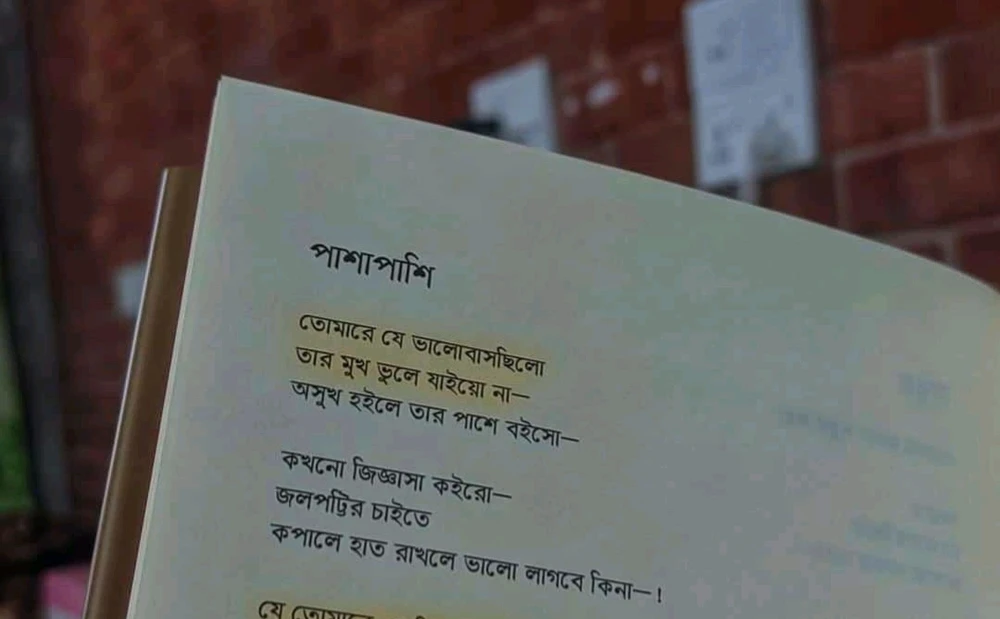 পাশাপাশি
তোমারে যে ভালোবাসছিলো
তার মুখ ভুলে যাইয়ো না—
অসুখ হইলে তার পাশে বইসো—
কখনো জিজ্ঞাসা কইরো—
জলপট্টির চাইতে
কপালে হাত রাখলে ভালো লাগবে কিনা—!
যে তোমারে